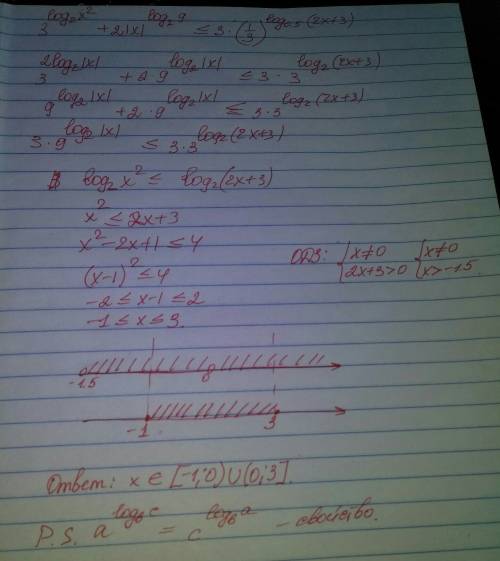 3^(log₂x²) + 2|x|^(log₂9) ≤ 3·(1/3)^(log₀,₅(2x+3))
3^(2log₂|x|) + 2·9^(log₂|x|) ≤ 3·3^(log₂(2x+3))
9^(log₂|x|) + 2·9^(log₂|x|) ≤ 3·3^(log₂(2x+3))
3·9^(log₂|x|) ≤ 3·3^(log₂(2x+3))
log₂x² ≤ log₂(2x+3)
x² ≤ 2x+3
x²-2x+1 ≤ 4
ОДЗ: {x≠0 {x≠0
{2x+3>0 {x>-1.5
(x-1)² ≤ 4
-2 ≤ x-1 ≤ 2
-1 ≤ x ≤ 3.
-1.5 0
-1 3
Ответ: x ∈ [-1;0)∪(0;3].
P.S. a^(log_b c) = c^(log_b a) - свойство.